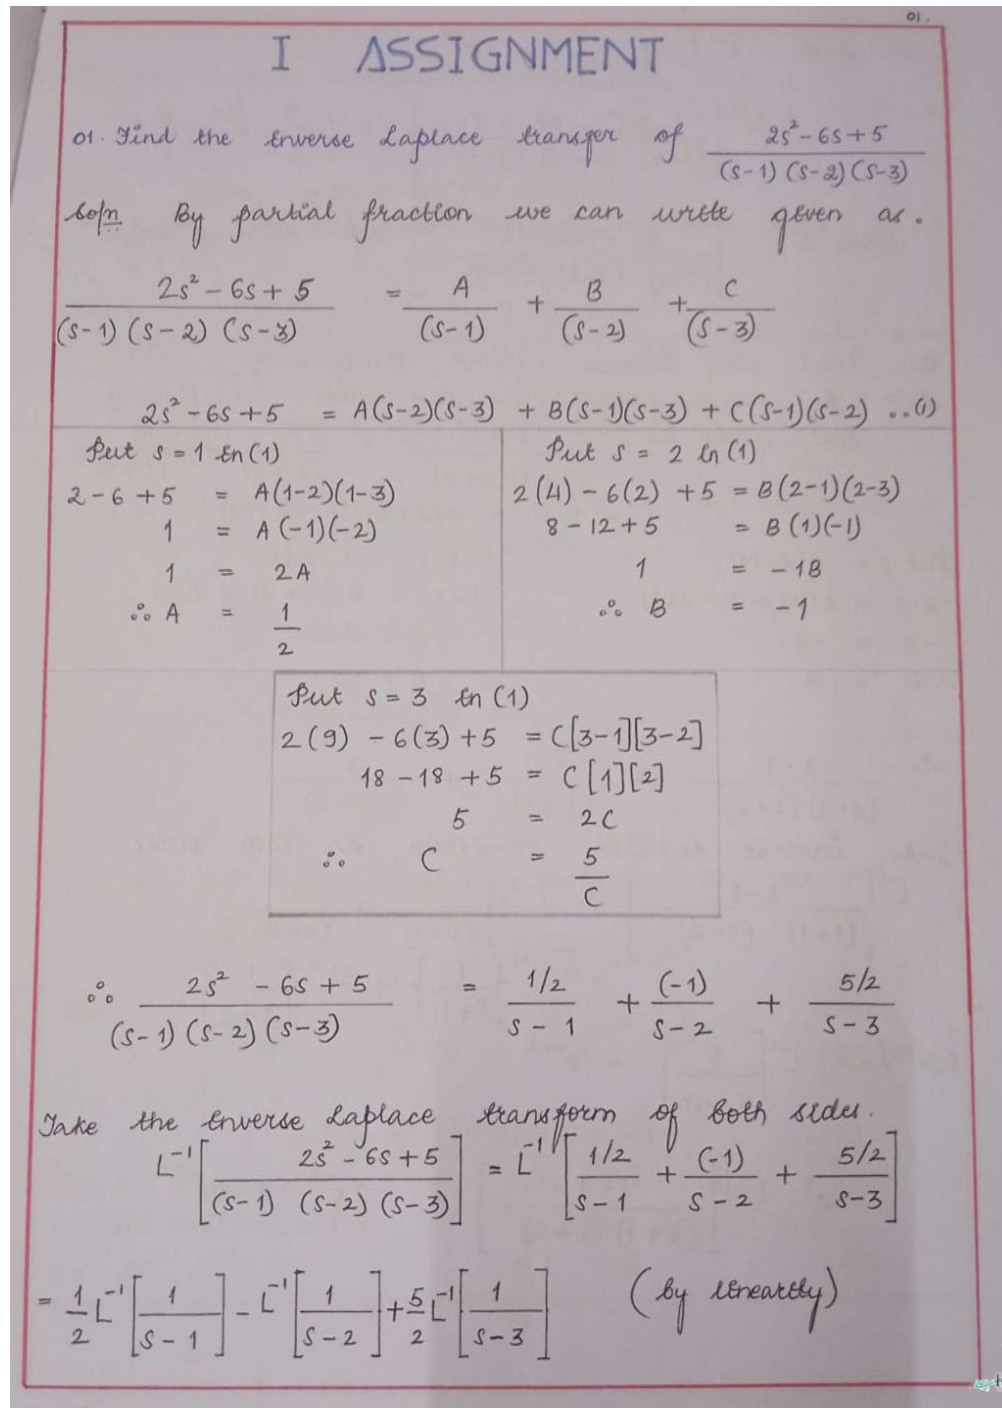 01.
I ASSIGNMENT
01. Find the inverse Laplace transfer of (2s² - 6s + 5) / ((s-1) (s-2) (s-3))
Soln By partial fraction we can write given as.
(2s² - 6s + 5) / ((s-1) (s-2) (s-3)) = A / (s-1) + B / (s-2) + C / (s-3)
2s² - 6s + 5 = A(s-2)(s-3) + B(s-1)(s-3) + C(s-1)(s-2) ..(1)
Put s = 1 in (1)
2 - 6 + 5 = A(1-2)(1-3)
1 = A(-1)(-2)
1 = 2A
∴ A = 1/2
Put s = 2 in (1)
2(4) - 6(2) + 5 = B(2-1)(2-3)
8 - 12 + 5 = B(1)(-1)
1 = -1B
∴ B = -1
Put s = 3 in (1)
2(9) - 6(3) + 5 = C[3-1][3-2]
18 - 18 + 5 = C[1][2]
5 = 2C
∴ C = 5/C
∴ (2s² - 6s + 5) / ((s-1) (s-2) (s-3)) = (1/2) / (s-1) + (-1) / (s-2) + (5/2) / (s-3)
Take the inverse Laplace transform of both sides.
L⁻¹[(2s² - 6s + 5) / ((s-1) (s-2) (s-3))] = L⁻¹[(1/2) / (s-1) + (-1) / (s-2) + (5/2) / (s-3)]
= 1/2 L⁻¹[1 / (s-1)] - L⁻¹[1 / (s-2)] + 5/2 L⁻¹[1 / (s-3)] (by linearity)